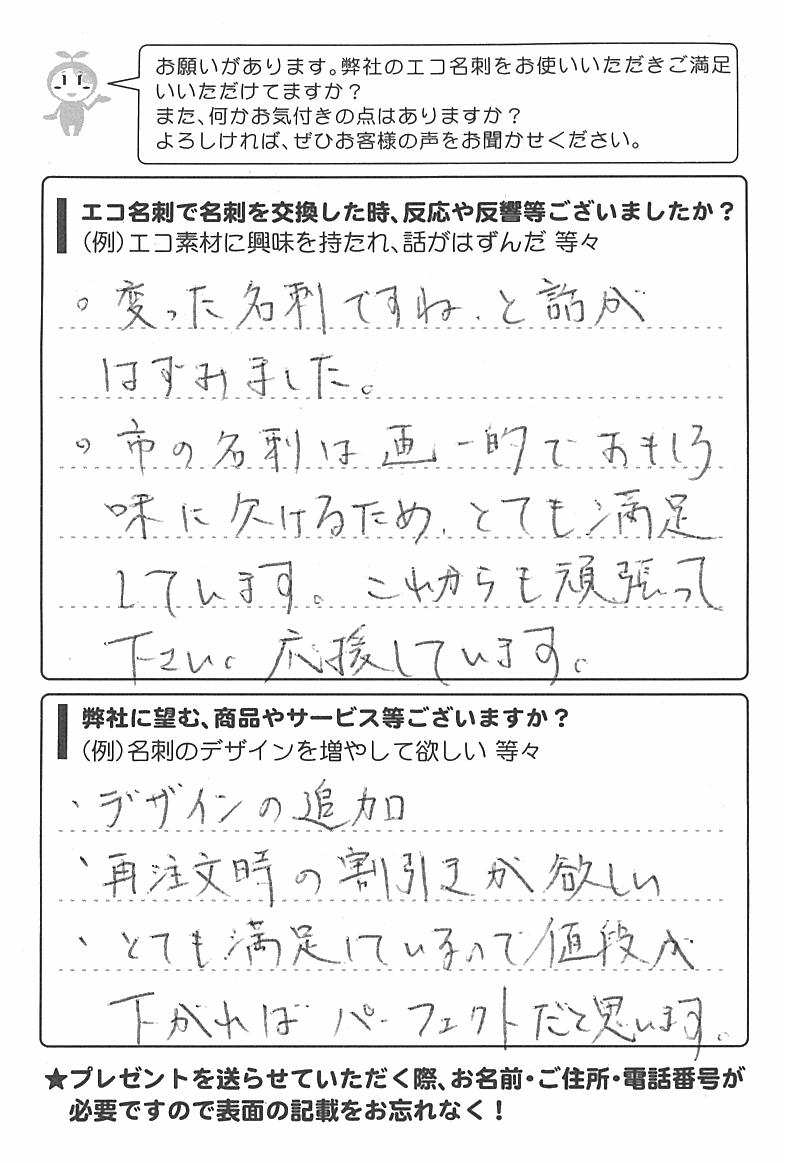 お願いがあります。弊社のエコ名刺をお使いいただきご満足
いいただけてますか？
また、何かお気付きの点はありますか？
よろしければ、ぜひお客様の声をお聞かせください。
エコ名刺で名刺を交換した時、反応や反響等ございましたか？
（例）エコ素材に興味を持たれ、話がはずんだ 等々
○変った名刺ですね、と話が
はずみました。
○市の名刺は画一的でおもしろ
味に欠けるため、とても満足
しています。これからも頑張って
下さい。応援しています。
弊社に望む、商品やサービス等ございますか？
（例）名刺のデザインを増やして欲しい 等々
・デザインの追加
・再注文時の割引きが欲しい
・とても満足しているので値段が
下がればパーフェクトだと思います。
★プレゼントを送らせていただく際、お名前・ご住所・電話番号が
必要ですので表面の記載をお忘れなく！